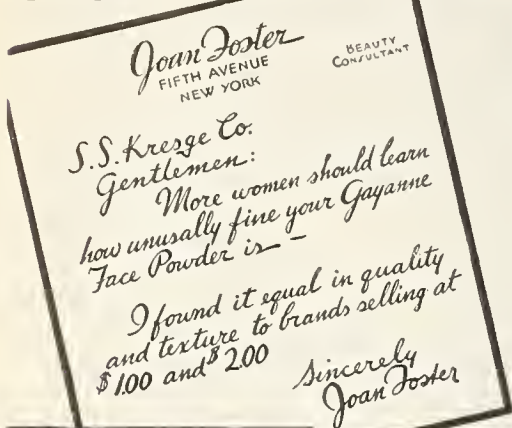 Joan Foster
FIFTH AVENUE
NEW YORK
BEAUTY
CONSULTANT
S.S. Kresge Co.
Gentlemen:
More women should learn
how unusally fine your Gayanne
Face Powder is —
I found it equal in quality
and texture to brands selling at
$1.00 and $2.00
Sincerely
Joan Foster